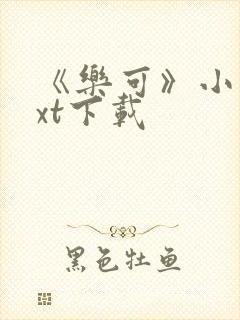 《樂可》小
xt下載
黑色牡鱼